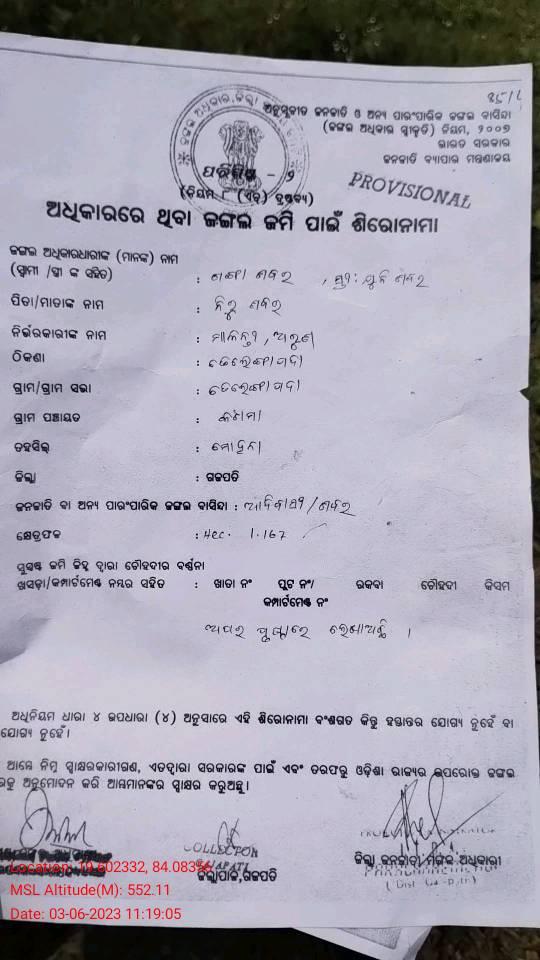 85/2
ଅନୁସୂଚୀତ ଜନଜାତି ଓ ଅନ୍ୟ ପାରଂପାରିକ ଜଙ୍ଗଲ ବାସିନ୍ଦା
(ଜଙ୍ଗଲ ଅଧିକାର ସ୍ୱୀକୃତି) ନିୟମ, ୨୦୦୭
ଭାରତ ସରକାର
ଜନଜାତି ବ୍ୟାପାର ମନ୍ତ୍ରଣାଳୟ
ଜଙ୍ଗଲ ଅଧିକାର, ଜିଲ୍ଲା
PROVISIONAL
ପରିଶିଷ୍ଟ - ୨
(ନିୟମ ୮ (ଏଚ୍) ଦ୍ରଷ୍ଟବ୍ୟ)
ଅଧିକାରରେ ଥିବା ଜଙ୍ଗଲ ଜମି ପାଇଁ ଶିରୋନାମା
ଜଙ୍ଗଲ ଅଧିକାରଧାରୀଙ୍କ (ମାନଙ୍କ) ନାମ
(ସ୍ୱାମୀ /ସ୍ତ୍ରୀ ଙ୍କ ସହିତ) : ଶବର , ସ୍ତ୍ରୀ: ଶବର
ପିତା/ମାତାଙ୍କ ନାମ : ଶବର
ନିର୍ଭରକାରୀଙ୍କ ନାମ : ମାଳତୀ, ଅରୁଣ
ଠିକଣା :
ଗ୍ରାମ/ଗ୍ରାମ ସଭା :
ଗ୍ରାମ ପଞ୍ଚାୟତ :
ତହସିଲ୍ : ମୋହନା
ଜିଲ୍ଲା : ଗଜପତି
ଜନଜାତି ବା ଅନ୍ୟ ପାରଂପାରିକ ଜଙ୍ଗଲ ବାସିନ୍ଦା : ଆଦିବାସୀ/ଶବର
କ୍ଷେତ୍ରଫଳ : Hec. 1.167
ସୁସ୍ପଷ୍ଟ ଜମି ଚିହ୍ନ ଦ୍ୱାରା ଚୌହଦୀର ବର୍ଣ୍ଣନା
ଖସଡ଼ା/କମ୍ପାର୍ଟମେଣ୍ଟ ନମ୍ବର ସହିତ : ଖାତା ନଂ ପ୍ଲଟ ନଂ/ ରକବା ଚୌହଦୀ କିସମ
କମ୍ପାର୍ଟମେଣ୍ଟ ନଂ
ଅପର ପୃଷ୍ଠାରେ ଲେଖାଅଛି ।
ଅଧିନିୟମ ଧାରା ୪ ଉପଧାରା (୪) ଅନୁସାରେ ଏହି ଶିରୋନାମା ବଂଶଗତ କିନ୍ତୁ ହସ୍ତାନ୍ତର ଯୋଗ୍ୟ ନୁହେଁ ବା
ଯୋଗ୍ୟ ନୁହେଁ।
ଆମ୍ଭେ ନିମ୍ନ ସ୍ୱାକ୍ଷରକାରୀଗଣ, ଏତଦ୍ୱାରା ସରକାରଙ୍କ ପାଇଁ ଏବଂ ତରଫରୁ ଓଡ଼ିଶା ରାଜ୍ୟର ଉପରୋକ୍ତ ଜଙ୍ଗଲ
ଅନୁମୋଦନ କରି ଆମ୍ଭମାନଙ୍କର ସ୍ୱାକ୍ଷର କରୁଅଛୁ।
COLLECTOR
ଜିଲ୍ଲାପାଳ,ଗଜପତି
ଜିଲ୍ଲା ଜନଜାତୀ ମଙ୍ଗଳ ଅଧିକାରୀ
Location: 19.602332, 84.08356
MSL Altitude(M): 552.11
Date: 03-06-2023 11:19:05